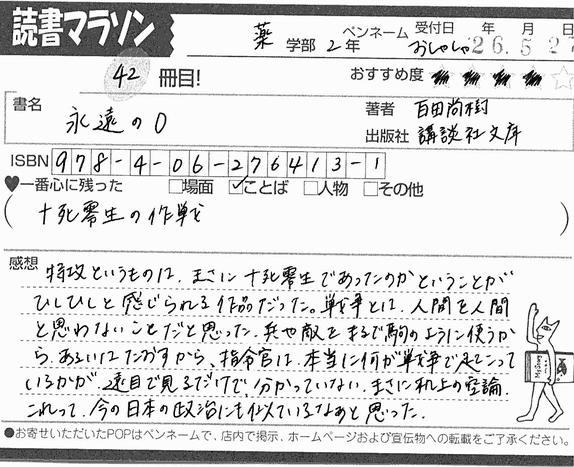 読書マラソン
薬 学部 2年 ペンネーム おしゃしゃ 受付日 年 月 日 26.5.27
42 冊目!
おすすめ度 ★★★★☆
書名 永遠の0
著者 百田尚樹
出版社 講談社文庫
ISBN 978-4-06-276413-1
♥一番心に残った □場面 ☑ことば □人物 □その他
(十死零生の作戦)
感想 特攻というものは、まさに十死零生であったのかということが
ひしひしと感じられる作品だった。戦争とは、人間を人間
と思わないことだと思った。兵や敵をまるで駒のように使うか
ら、あるいはたおすから、指令官は、本当に何が戦争で起こって
いるかが、遠目で見るだけで、分かっていない。まさに机上の空論。
これって、今の日本の政治にも似ているなあと思った。
●お寄せいただいたPOPはペンネームで、店内で掲示、ホームページおよび宣伝物への転載をご了承ください。